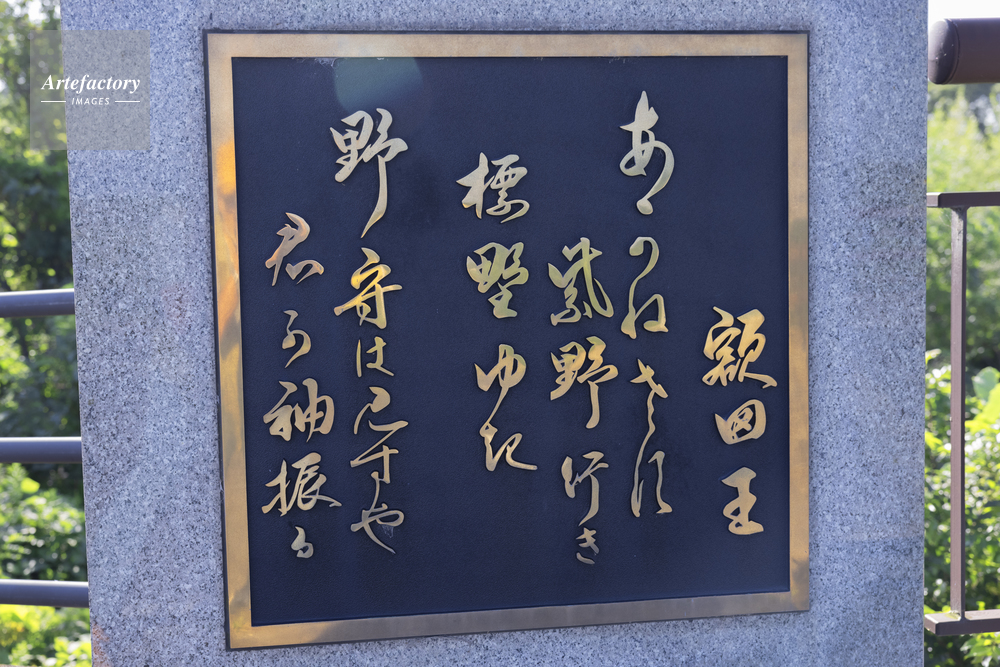 額田王
あかねさす
紫野行き
標野ゆき
野守は見ずや
君が袖振る
Artefactory
IMAGES